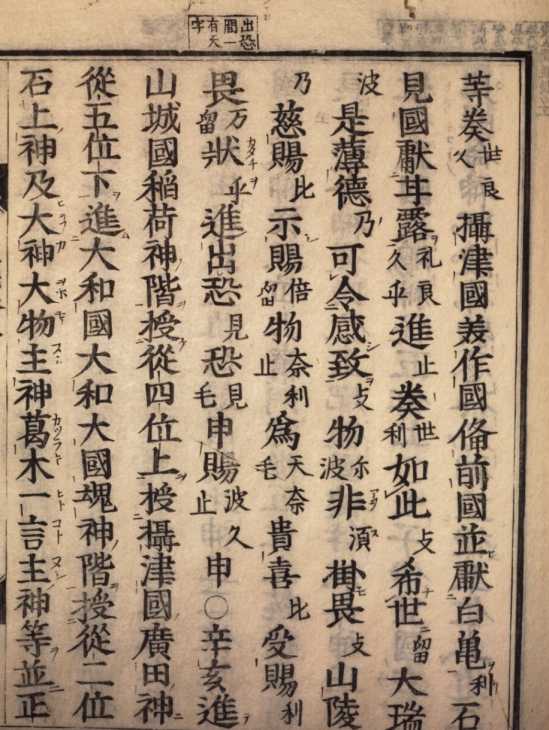 出恐
間一
有天
字
等奏世良久攝津國美作國備前國並獻白亀利石
見國獻甘露礼良久乎進止奏世利如此攴希世留大瑞
波是薄德乃可令感致攴物尓波非湏掛畏攴山陵
乃慈賜比示賜倍留物奈利止爲天奈毛貴喜比受賜利
畏万留狀乎進出恐見恐見毛申賜波久止申○辛亥進
山城國稻荷神階授從四位上授攝津國廣田神
從五位下進大和國大和大國魂神階授從二位
石上神及大神大物主神葛木一言主神等並正